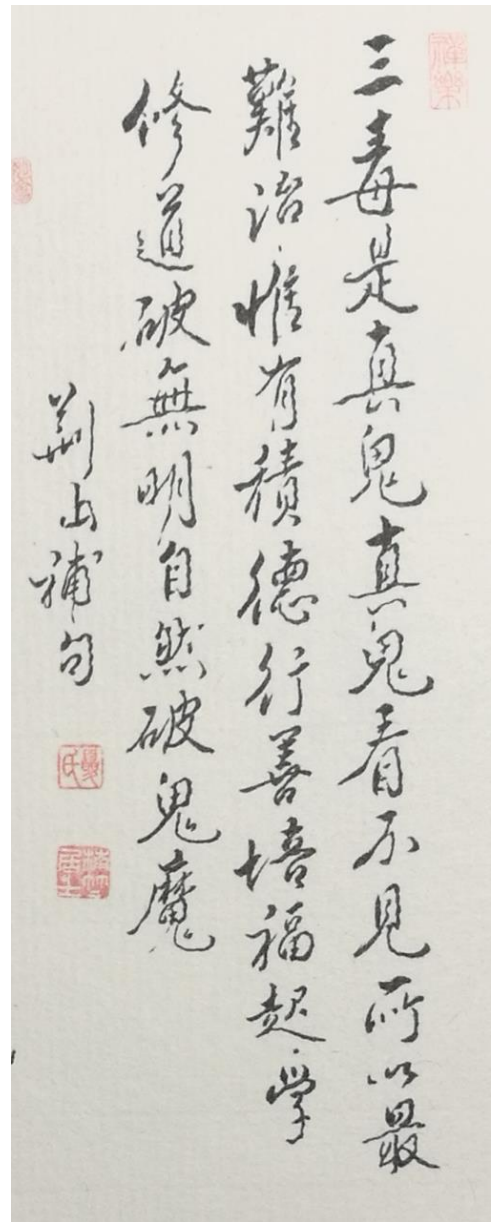 三毒是真鬼真鬼看不見所以最
難治惟有積德行善培福起學
修道破無明自然破鬼魔
荆山補句